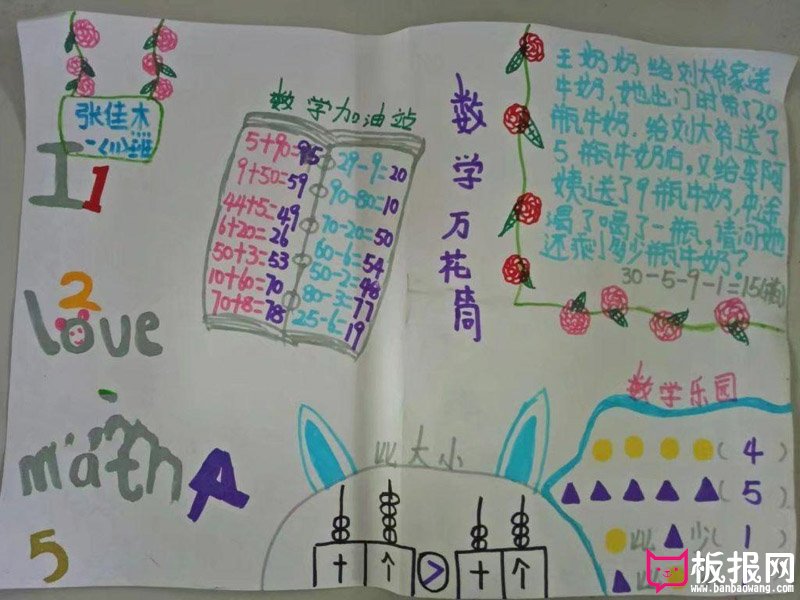 张佳杰
一(11)班
I
1
2
love
math
A
5
数学加油站
5+90=95
9+50=59
44+5=49
6+20=26
50+3=53
10+60=70
70+8=78
29-9=20
90-80=10
70-20=50
60-6=54
50-2=48
80-3=77
25-6=19
数学万花筒
王奶奶给刘大爷家送
牛奶,她出门时带了30
瓶牛奶.给刘大爷送了
5瓶牛奶后,又给李阿
姨送了9瓶牛奶,中途
渴了喝了一瓶,请问她
还剩多少瓶牛奶?
30-5-9-1=15(瓶)
数学乐园
( 4 )
( 5 )
比 少( 1 )
比
比大小
十 个 > 十 个
板报网
www.banbaowang.com